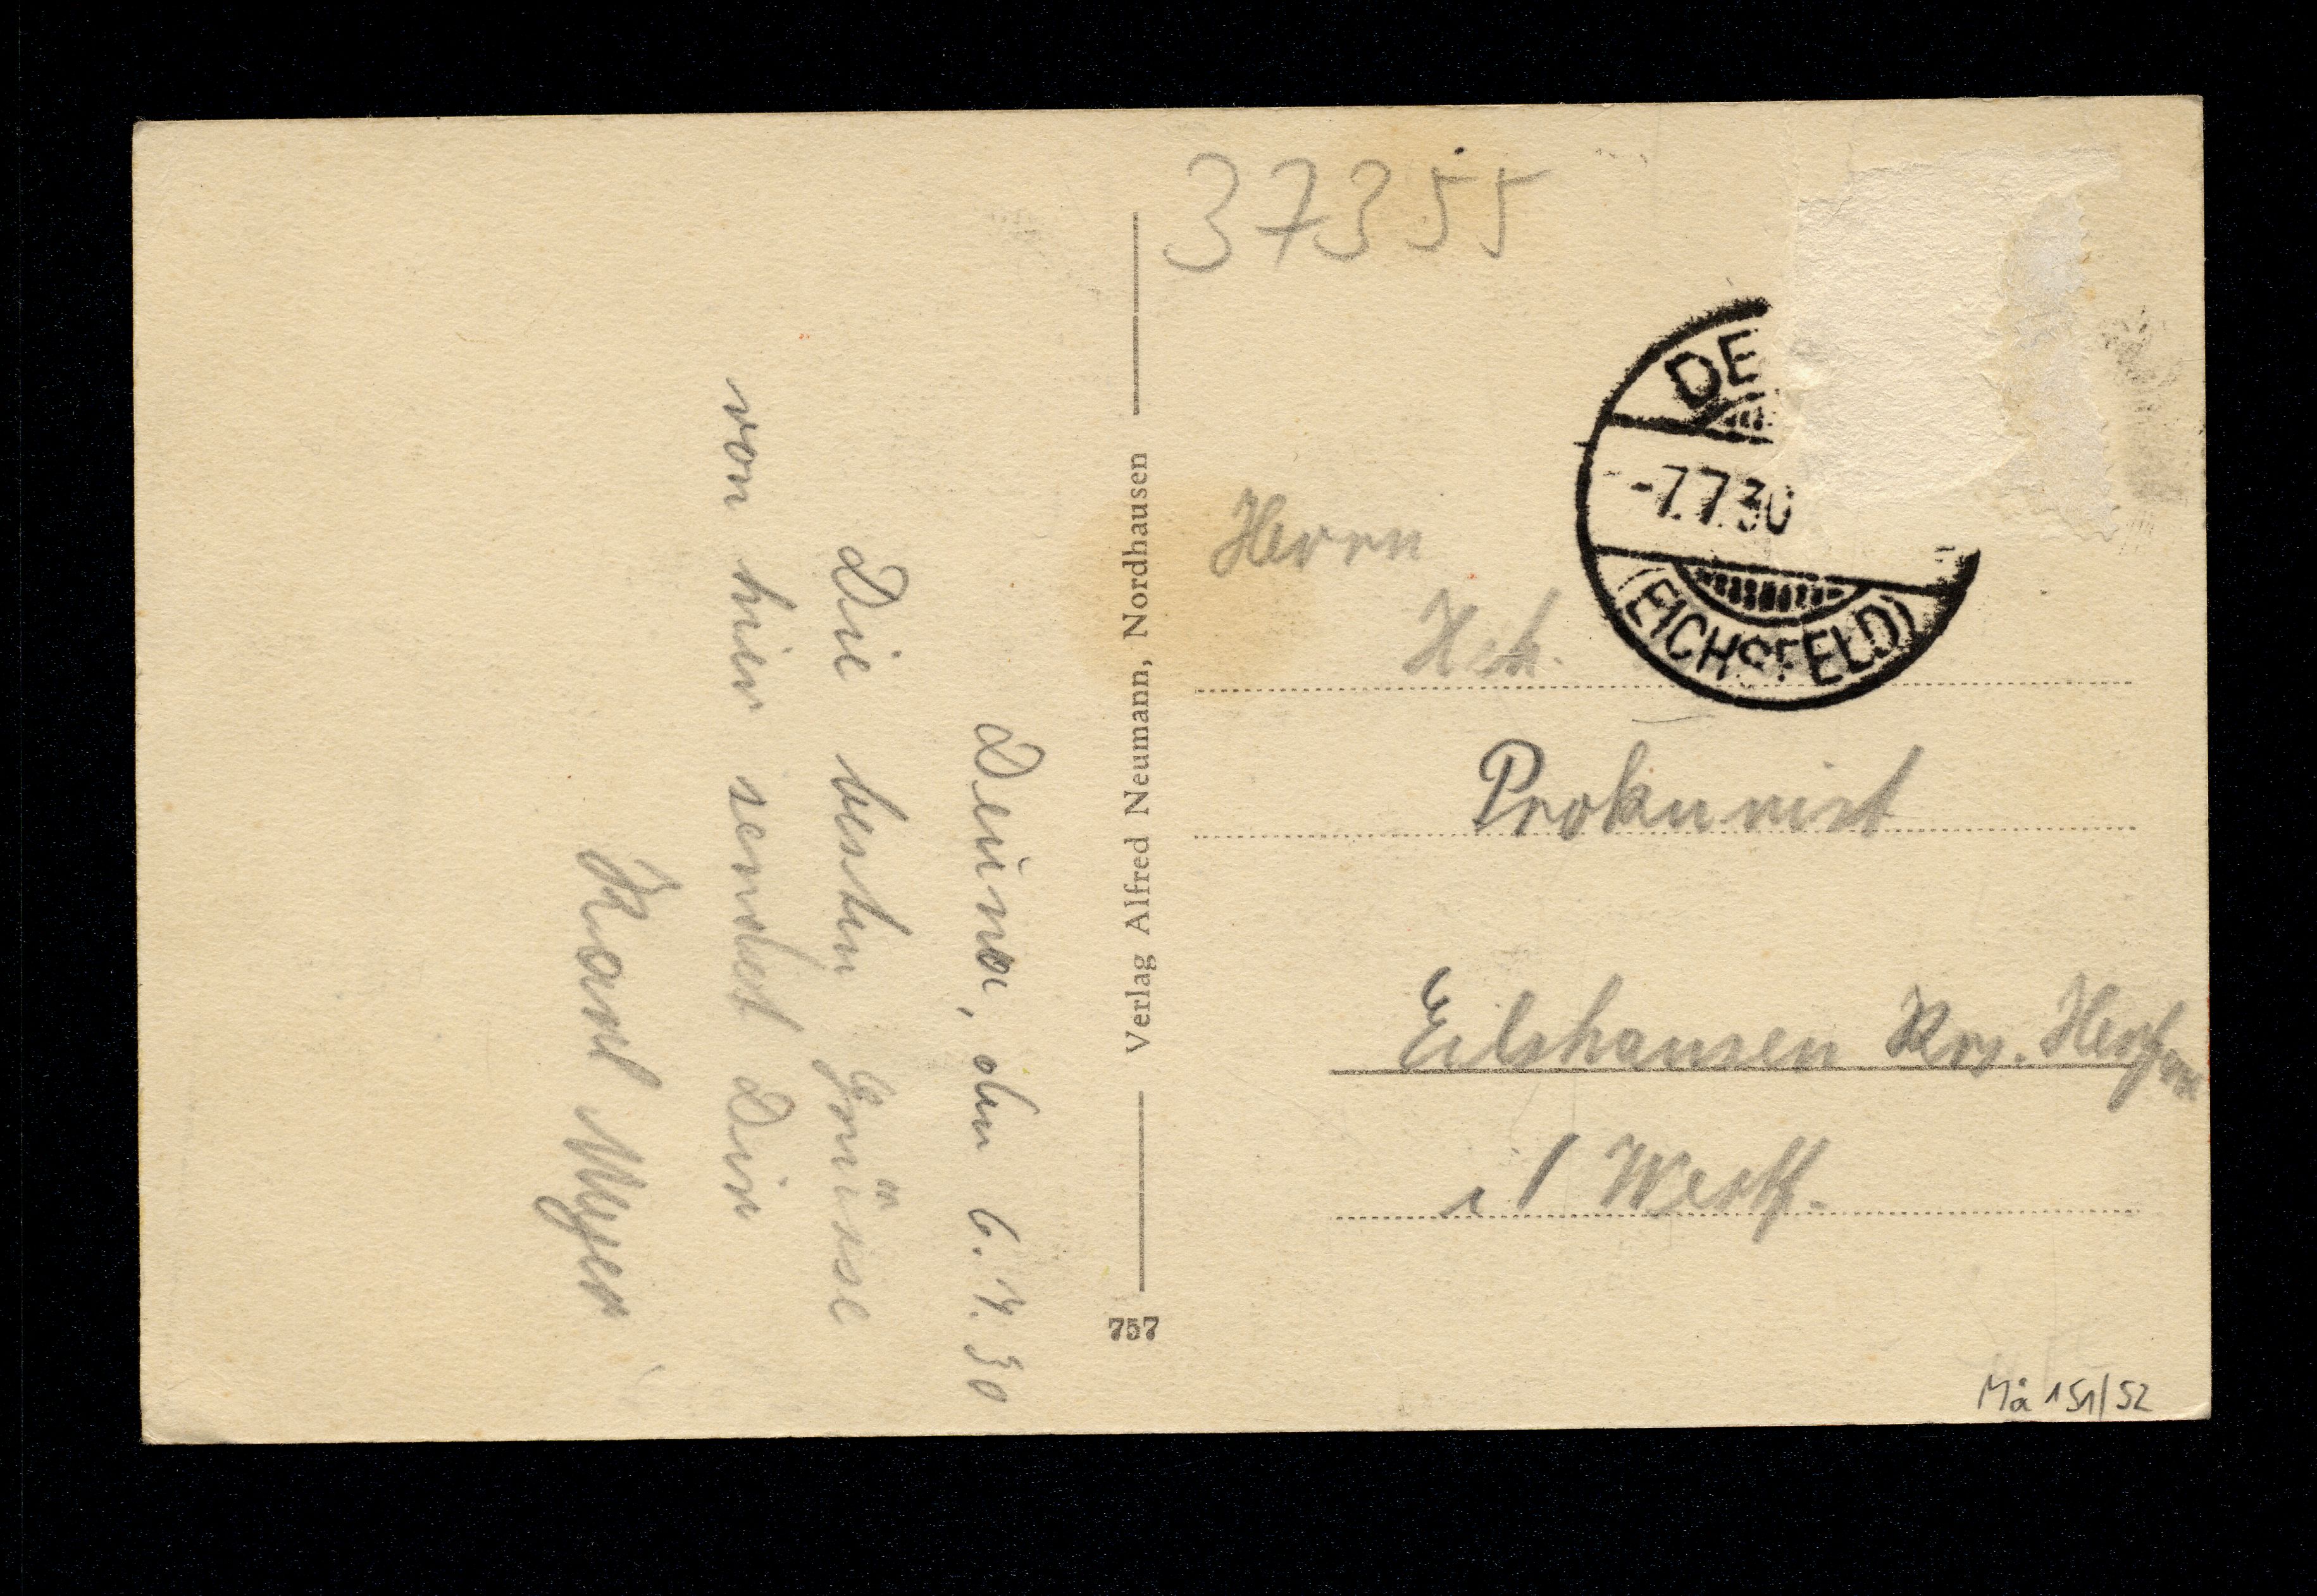 Deuna, den 6.7.30
Die besten Grüsse
von hier sendet Dir
Karl Meyer
Verlag Alfred Neumann, Nordhausen
757
37355
DE
-7.7.30
(EICHSFELD)
Herrn
Hch.
Prokurist
Eilshausen Krs. Herford
i/ Westf.
Mä 151/52